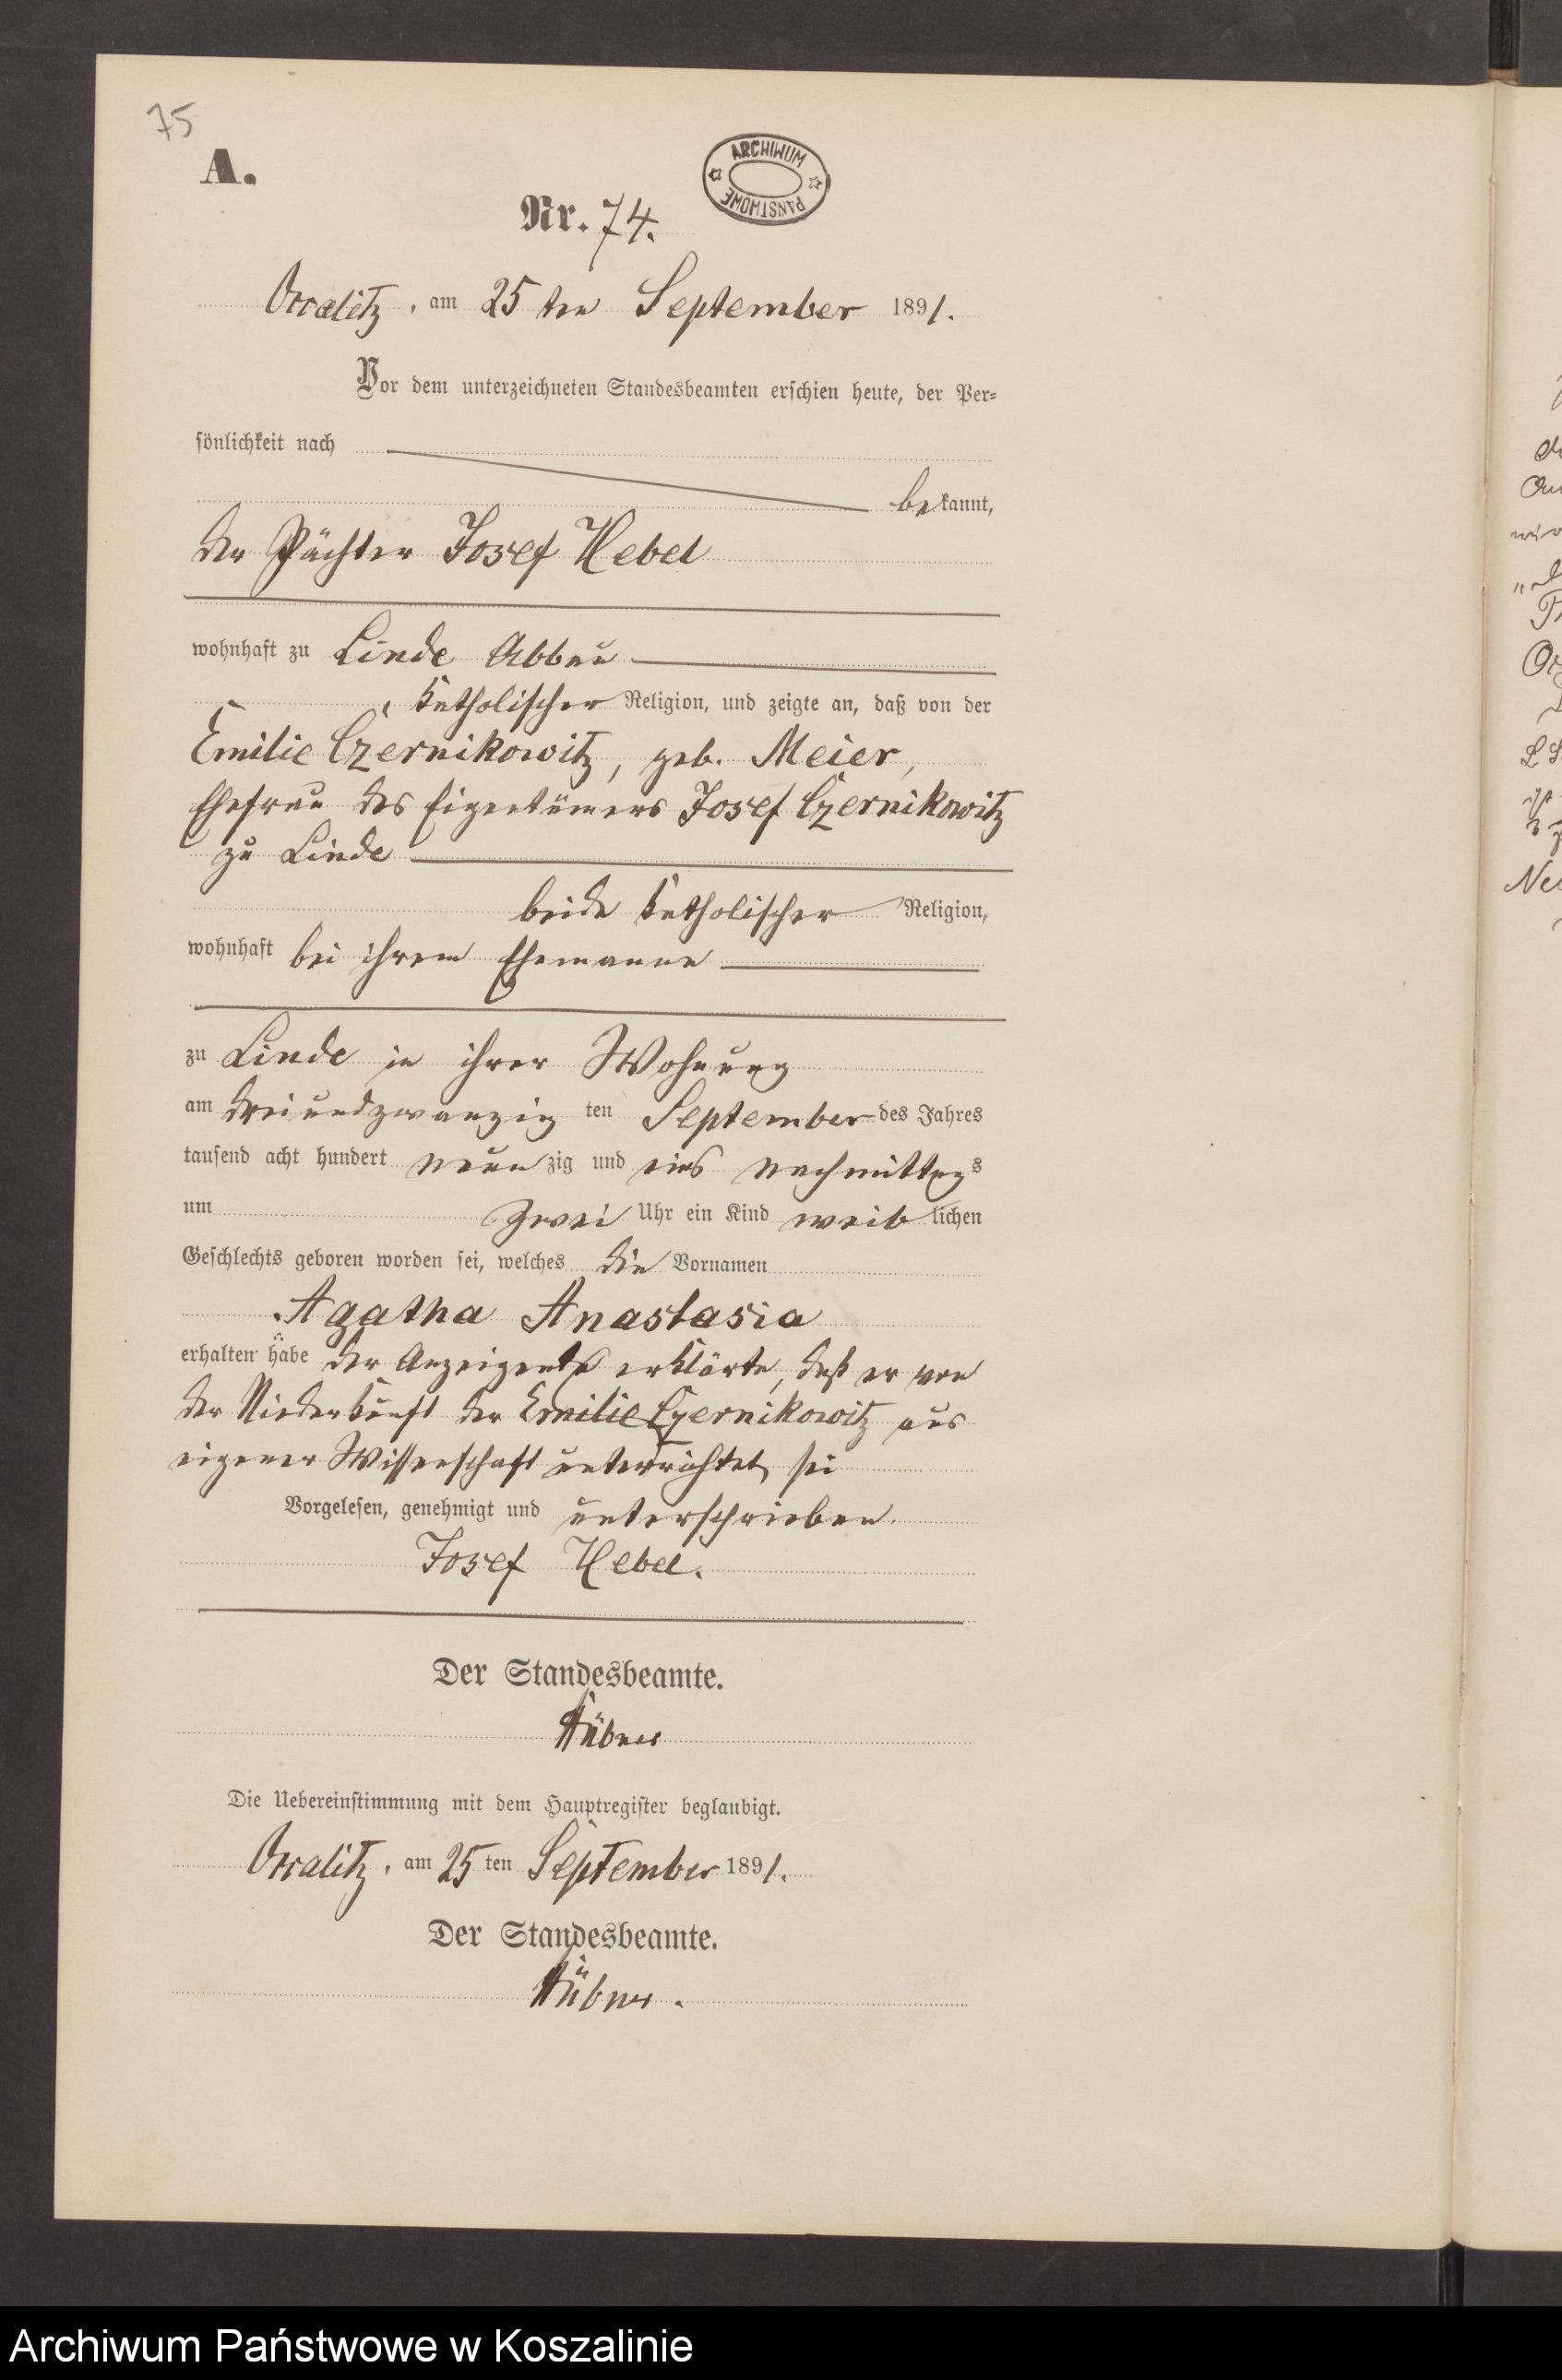 75
A.
ARCHIWUM
PAŃSTWOWE
Nr. 74.
am 25ten September 1891.
Vor dem unterzeichneten Standesbeamten erschien heute, der Per=
sönlichkeit nach
bekannt,
der Pächter Josef Hebel
wohnhaft zu Linde Abbau
katholischer Religion, und zeigte an, daß von der
Emilie Czernikowitz, geb. Meier,
Ehefrau des Eigentümers Josef Czernikowitz
zu Linde
beide katholischer Religion,
wohnhaft bei ihrem Ehemanne
zu Linde in ihrer Wohnung
am dreiundzwanzigten September des Jahres
tausend acht hundert neunzig und eins nachmittags
um zwei Uhr ein Kind weiblichen
Geschlechts geboren worden sei, welches die Vornamen
Agatha Anastasia
erhalten häbe der Anzeigende erklärte, daß er von
der Niederkunft der Emilie Czernikowitz aus
eigener Wissenschaft unterrichtet sei
Vorgelesen, genehmigt und unterschrieben.
Josef Hebel.
Der Standesbeamte.
Hübner
Die Uebereinstimmung mit dem Hauptregister beglaubigt.
am 25ten September 1891.
Der Standesbeamte.
Hübner.
Archiwum Państwowe w Koszalinie